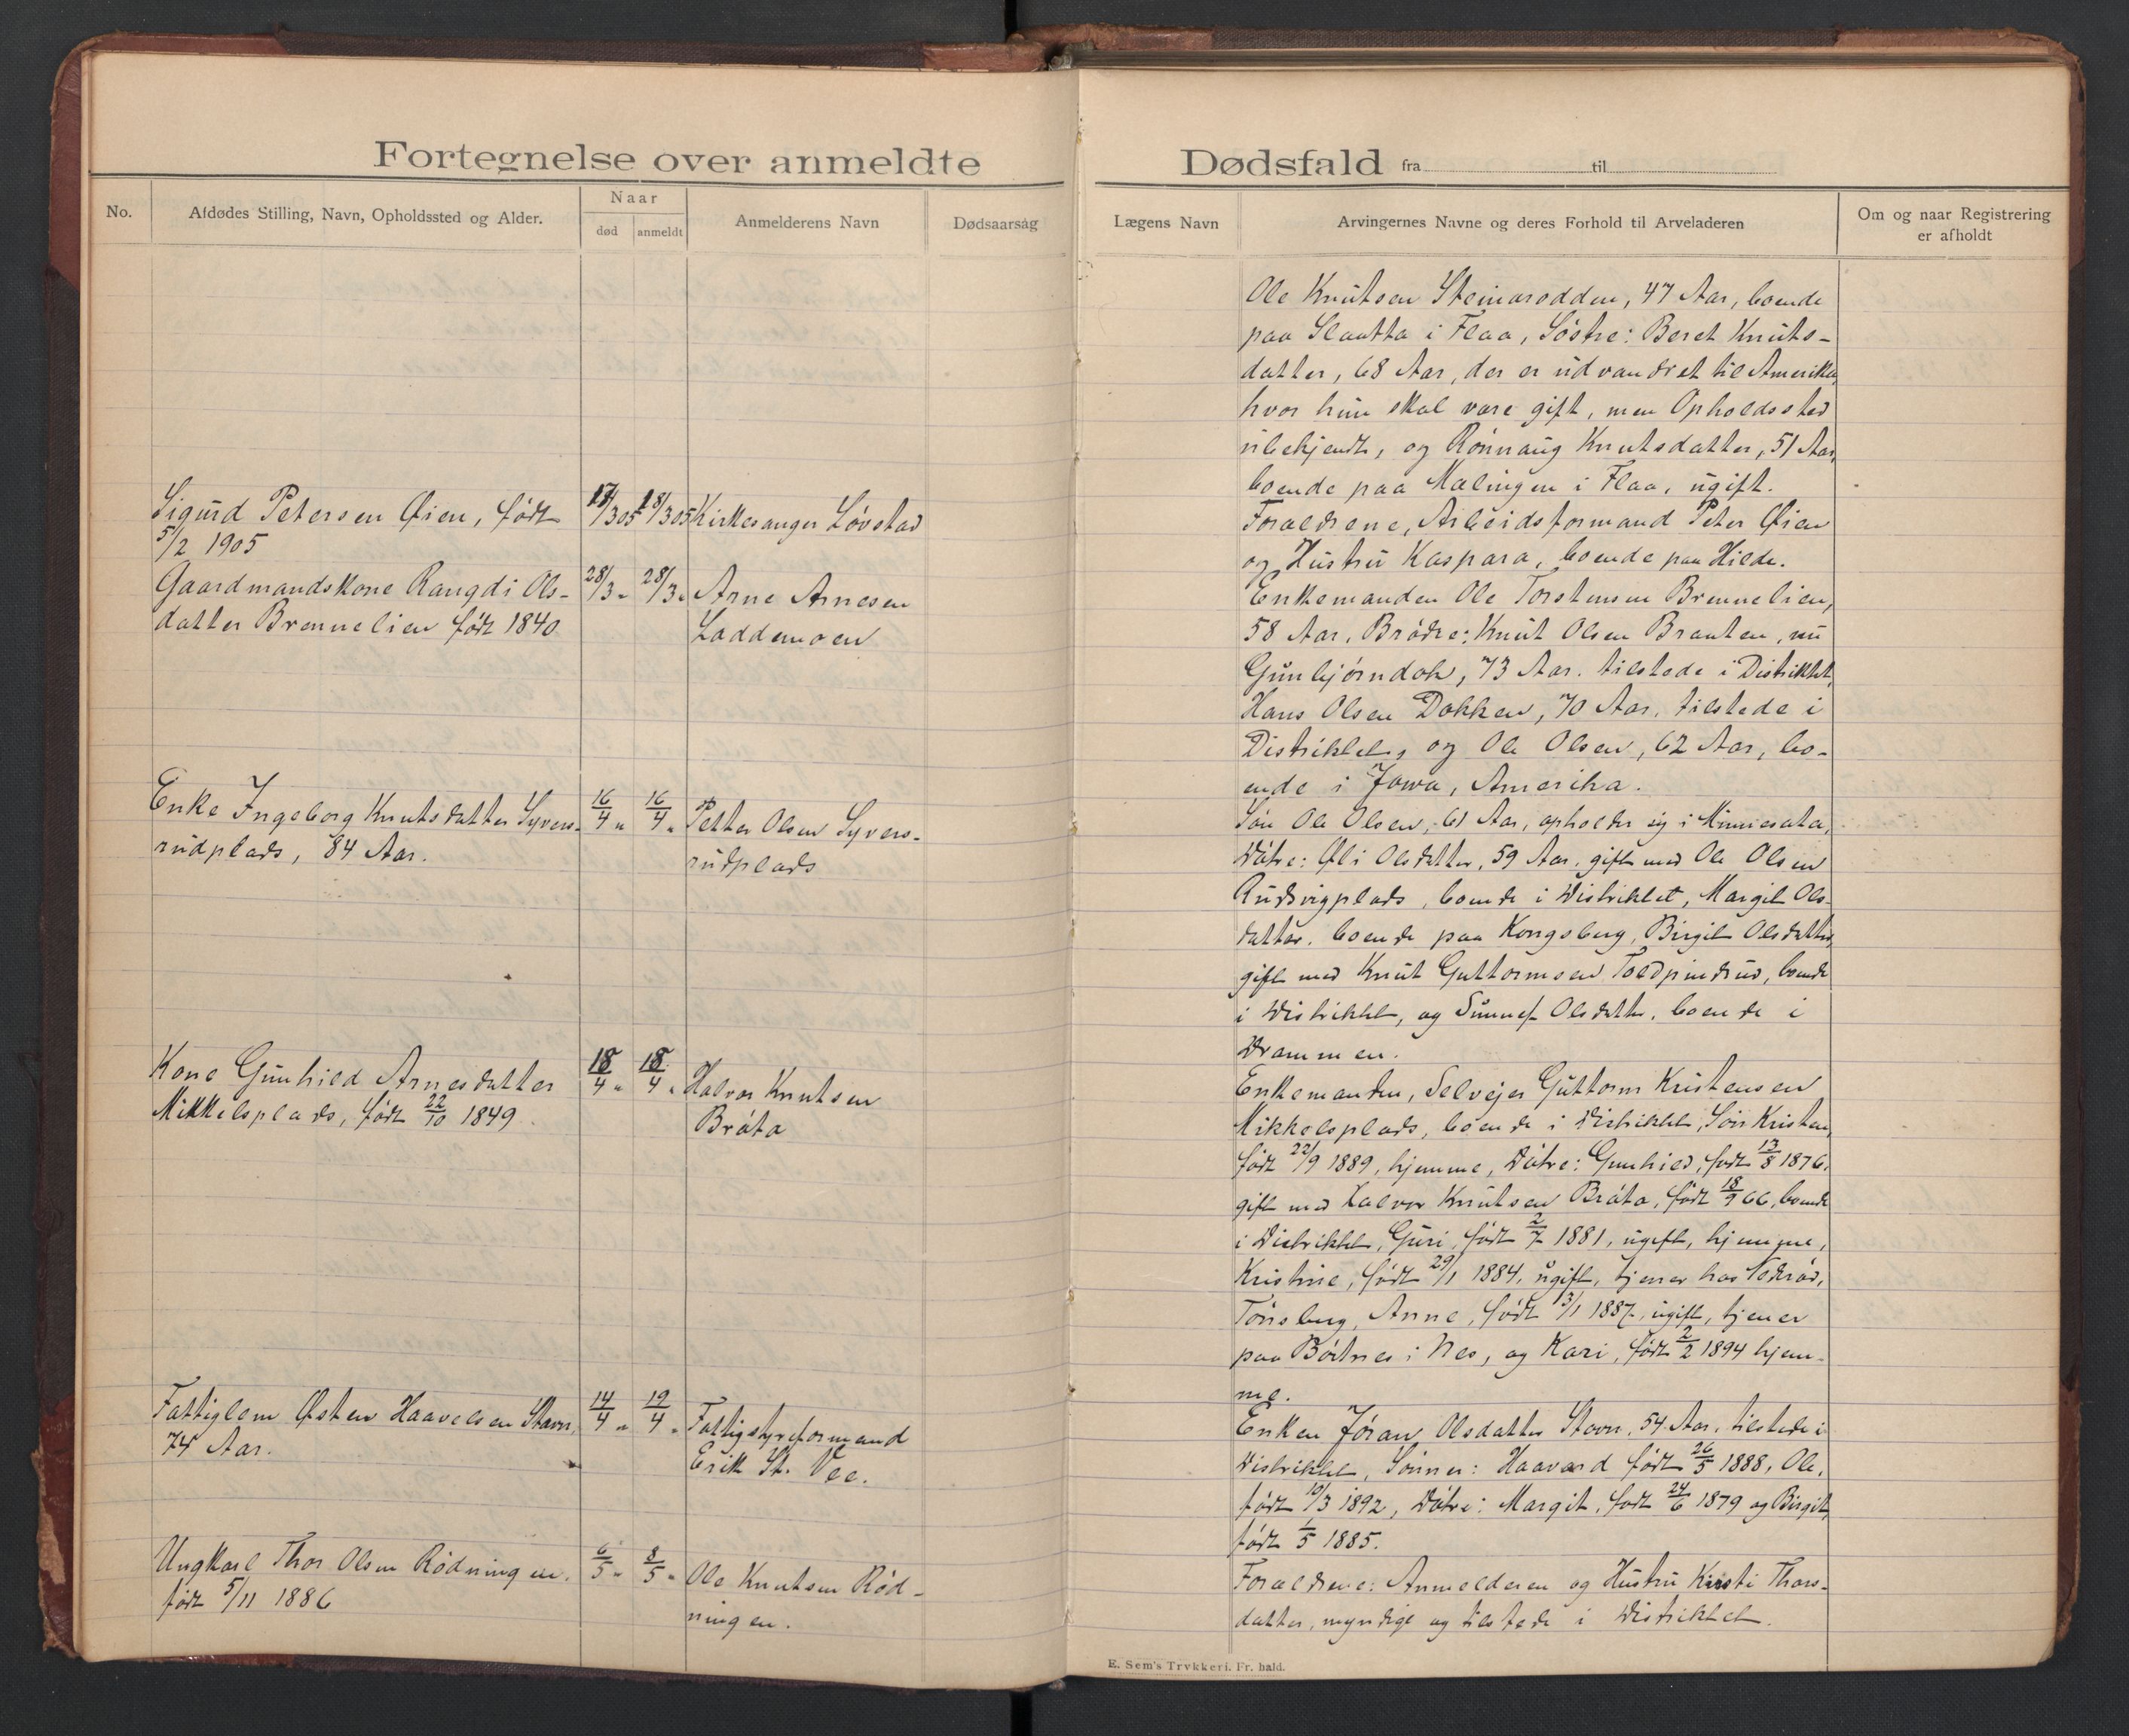 Fortegnelse over anmeldte
No.
Afdødes Stilling, Navn, Opholdssted og Alder.
Naar
død
anmeldt
Anmelderens Navn
Dødsaarsag
Sigurd Petersen Øien, født
5/2 1905
17/3 05
18/3 05
Kirkesanger Løvstad
Gaardmandskone Rangdi Ols-
datter Brennelien født 1840
28/3 "
28/3 "
Arne Arnesen
Laddemoen
Enke Ingeborg Knutsdatter Syvers-
rudplads, 84 Aar.
16/4 "
16/4 "
Petter Olsen Syvers-
rudplads
Kone Gunhild Arnesdatter
Mikkelsplads, født 22/10 1849.
18/4 "
18/4 "
Halvor Knutsen
Bråta
Fattiglem Østen Haavelsen Stavn,
74 Aar.
14/4 "
19/4 "
Fattigstyreformand
Erik St. Vee.
Ungkarl Thor Olsen Rødningen.
født 5/11 1886
6/5 "
8/5 "
Ole Knutsen Rød-
ningen.
Dødsfald fra til
Lægens Navn
Arvingernes Navne og deres Forhold til Arveladeren
Om og naar Registrering
er afholdt
Ole Knutsen Steinarodden, 47 Aar, boende
paa Slaatta i Flaa, Søstre: Beret Knuts-
datter, 68 Aar, der er udvandret til Amerika,
hvor hun skal være gift, men Opholdssted
ubekjendt, og Rønnaug Knutsdatter, 51 Aar,
boende paa Mælingen i Flaa, ugift.
Forældrene, Arbeidsformand Peter Øien
og Hustru Kaspara, boende paa Hilde.
Enkemanden Ole Torstensen Brennelien,
58 Aar, Brødre: Knut Olsen Braaten, nu
Gunbjørndok, 73 Aar. tilstede i Distriktet,
Hans Olsen Dokken, 70 Aar, tilstede i
Distriktet, og Ole Olsen, 62 Aar, bo-
ende i Jowa, Amerika.
Søn Ole Olsen, 61 Aar, opholder sig i Minnesota,
Døtre: Øli Olsdatter, 59 Aar, gift med Ole Olsen
Rudsvigplads, boende i Distriktet, Margit Ols-
datter, boende paa Kongsberg, Birgit Olsdatter,
gift med Knut Guttormsen Toldpindrud, boende
i Distriktet, og Sunnef Olsdatter, boende i
Drammen.
Enkemanden, Selveier Guttorm Kristensen
Mikkelsplads, boende i Distriktet, Søn Kristen,
født 22/9 1889, hjemme, Døtre: Gunhild, født 13/8 1876,
gift med Halvor Knutsen Bråta, født 18/9 66, boende
i Distriktet, Guri, født 2/7 1881, ugift, hjemme,
Kristine, født 29/1 1884, ugift, tjener hos
Tønsberg, Anne, født 13/1 1887, ugift, tjener
paa Børtnes i Nes, og Kari, født 2/2 1894 hjem-
me.
Enken Jøran Olsdatter Stavn, 54 Aar, tilstede i
Distriktet, Sønner: Haavard født 26/5 1888, Ole,
født 19/3 1892, Døtre: Margit, født 24/6 1879 og Birgit,
født 1/5 1885.
Forældrene: Anmelderen og Hustru Kirsti Thors-
datter, myndige og tilstede i Distriktet.
E. Sem's Trykkeri. Fr.hald.